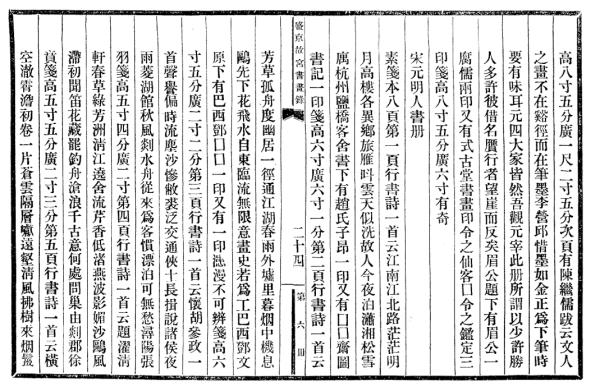 高八寸五分廣一尺二寸五分次頁有陳繼儒跋云文人
之畫不在谿徑而在筆墨李營邱惜墨如金正爲下筆時
要有味耳元四大家皆然吾觀元宰此册所謂以少許勝
人多許彼借名贋行者望崖而反矣眉公題下有眉公一
腐儒兩印又有式古堂書畫印令之仙客囗令之鑑定三
印箋高八寸五分廣六寸有奇
宋元明人書册
素箋本八頁第一頁行書詩一首云江南江北路茫茫明
月高樓各異鄉旅雁呌雲天似洗故人今夜泊瀟湘松雪
寓杭州鹽橋客舍書下有趙氏子昂一印又有囗囗齋圖
書記一印箋高六寸廣六寸一分第二頁行書詩一首云
盛京故宮書畫錄
二十四
第六冊
芳草孤舟度幽居一徑通江湖春雨外墟里暮烟中機息
鷗先下花飛水自東臨流無限意史若爲工巴西鄧文
原下有巴西鄧囗囗囗囗又有一印漶漫不可辨箋高六
寸五分廣二寸二分第三頁行書詩一首云懷胡參政一
首聲譽偏時流塵沙慘敝裘泛交通俠士長揖說諸侯夜
雨菱湖館秋風剡水舟從來爲客慣漂泊可無愁潯陽張
羽箋高五寸四分廣二寸第四頁行書詩一首云題濯清
軒春草綠芳洲清江遠舍流芹香低渚燕波影媚沙鷗風
滯初聞笛花藏罷釣舟滄浪千古意何處問巢由剡郡徐
賁箋高五寸五分廣二寸三分第五頁行書詩一首云橫
空澈霄澹初卷一片蒼雲隔層巘遠壑清風拂樹來烟鬟